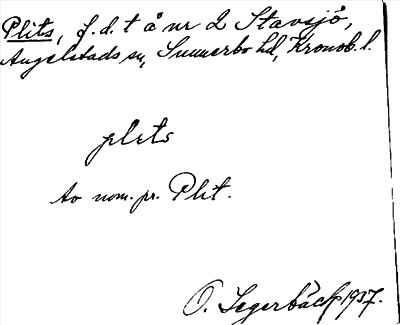 Plits, f. d. t å nr 2 Stavsjö,
Angelstads sn, Sunnerbo hd, Kronob. l.
plits
to nom. pr. Plit.
O. Segerbäck 1937.